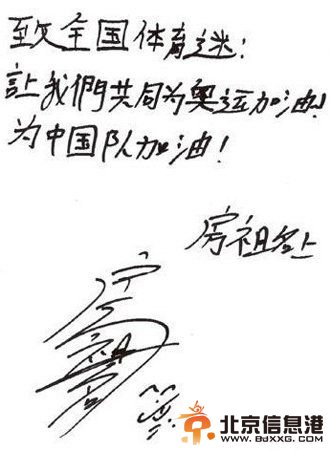 致全国体育迷：
让我們共同为奥运加油！
为中国队加油！
房祖名上
房祖名
北京信息港
WWW.BJXXG.COM